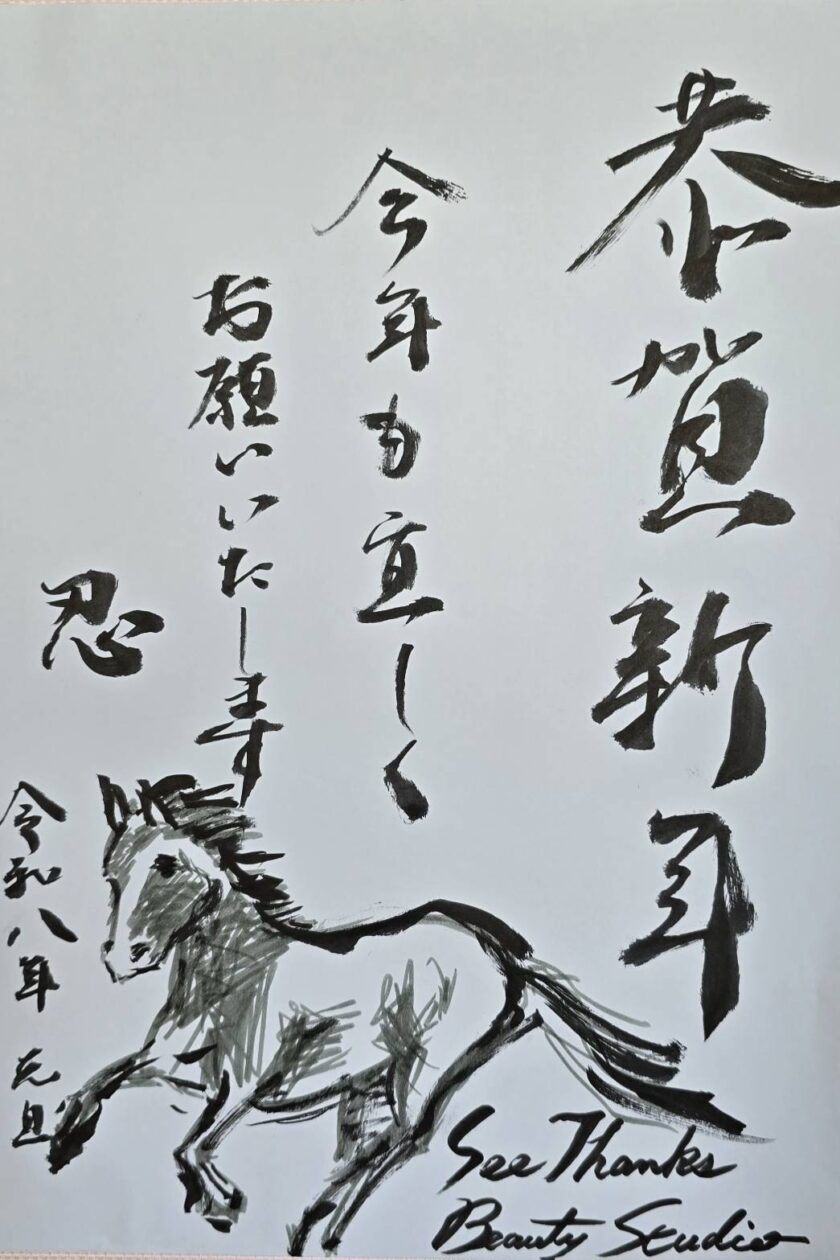 恭賀新年
今年も宜しく
お願いいたします
忍
令和八年 元旦
See Thanks
Beauty Studio